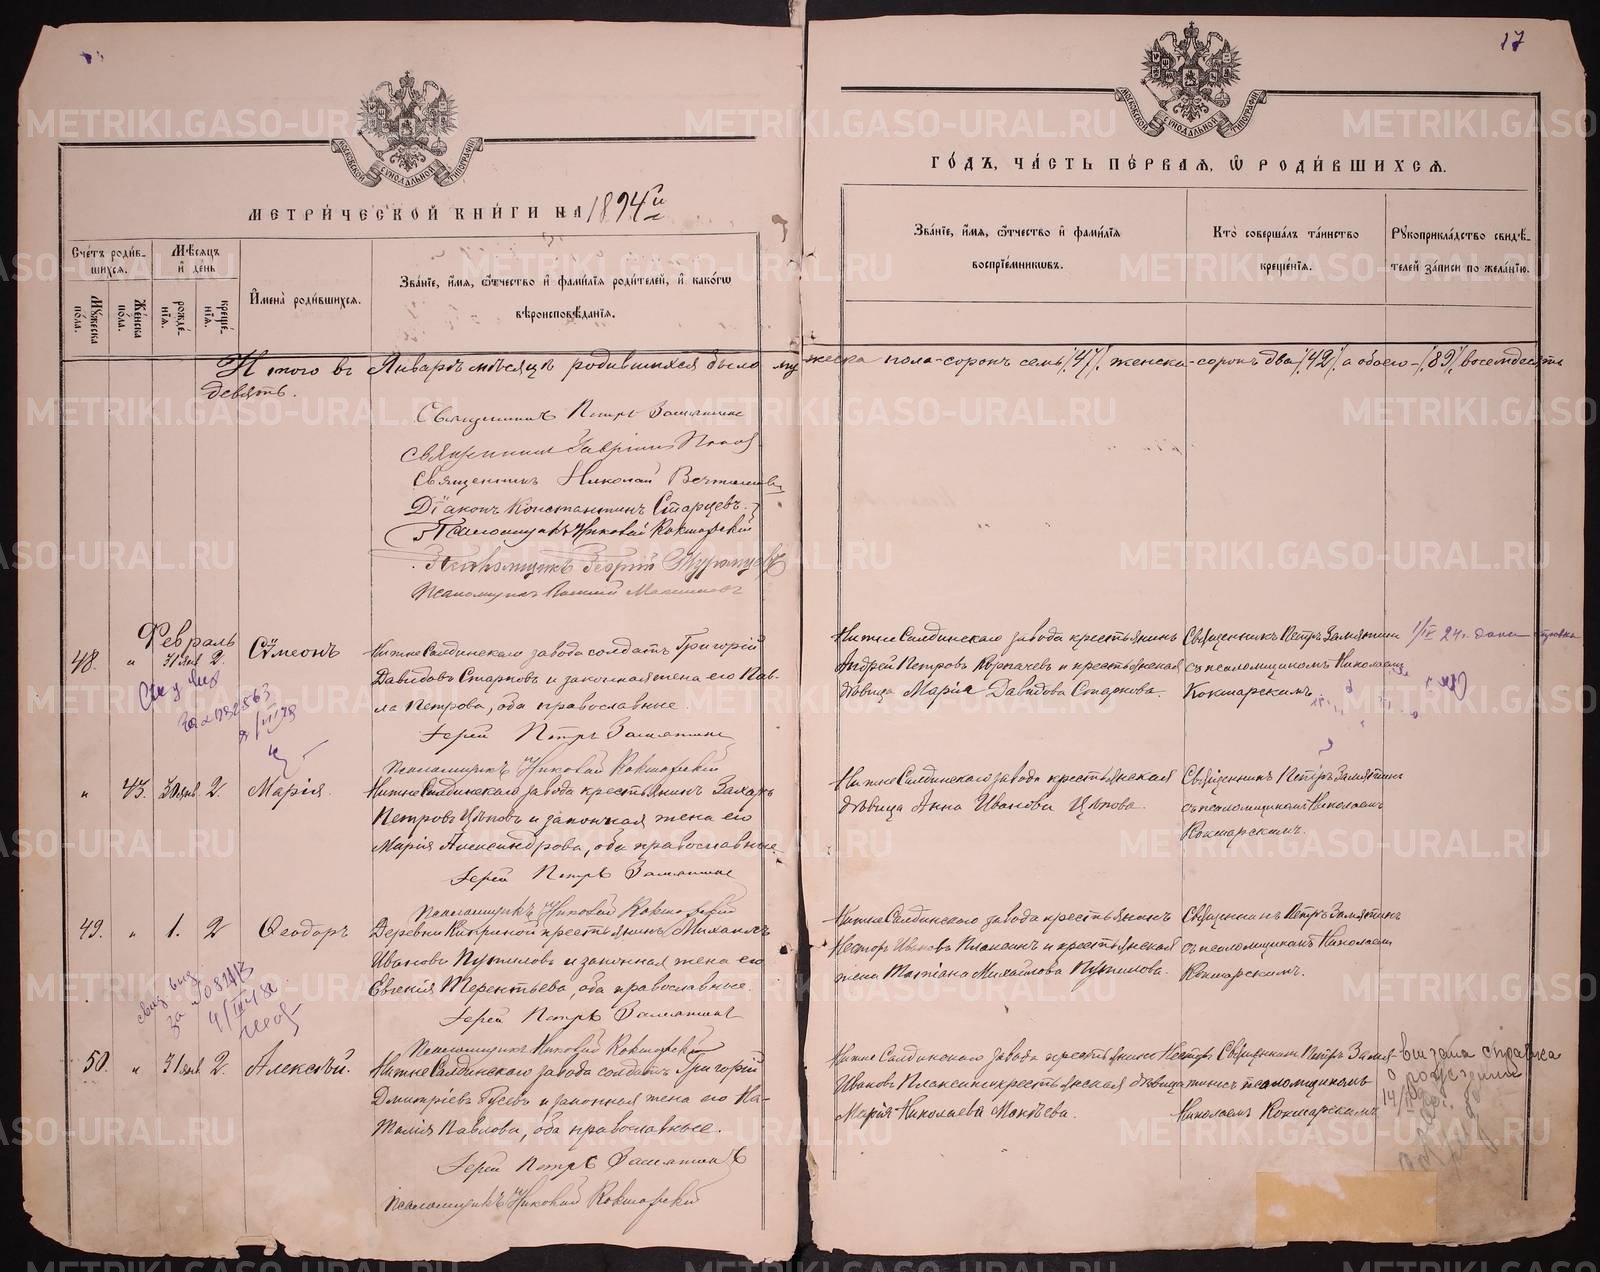 17
МЕТРИЧЕСКОЙ КНИГИ НА 1894й
ГОДЪ, ЧАСТЬ ПЕРВАЯ, Ѡ РОДИВШИХСЯ.
Счетъ родив-
шихся.
Мѣсяцъ
и день
Мужеска
пола.
Женска
пола.
рожде-
нія.
креще-
нія.
Имена родившихся.
Званіе, имя, ѿчество и фамилія родителей, и какогѡ
вѣроисповѣданія.
Званіе, имя, ѿчество и фамилія
воспріемниковъ.
Кто совершалъ таинство
крещенія.
Рукоприкладство свидѣ-
телей записи по желанію.
Итого въ Январѣ мѣсяцѣ родившихся было мужеска пола-сорокъ семь /47/, женска-сорокъ два /42/, а обоего-/89/, восемдесятъ
девять.
Священникъ Петръ Замятинъ
Священникъ Гавріилъ Попов
Священникъ Николай
Діаконъ Константинъ Старцевъ
Псаломщикъ Николай Кокшарскій
Псаломщикъ Георгій
Псаломщикъ
Февраль
48. " 31 янв 2. Сѵмеонъ
Нижне Салдинскаго завода солдатъ Григорій
Давидовъ Старковъ и законная жена его Пав-
ла Петрова, оба православные.
Іерей Петръ Замятинъ
Псаломщикъ Николай Кокшарскій
Нижне Салдинскаго завода крестьянинъ
Андрей Петровъ Корпачевъ и крестьянская
дѣвица Марія Давидова Старкова.
Священникъ Петръ Замятин
съ псаломщикомъ Николаемъ
Кокшарскимъ
1/IV 24 г. дана справка
" 43. 30 янв. 2 Марія.
Нижне Салдинскаго завода крестьянинъ Захаръ
Петровъ Цѣповъ и законная жена его
Марія Александрова, оба православные.
Іерей Петръ Замятинъ
Псаломщикъ Николай Кокшарскій
Нижне Салдинскаго завода крестьянская
дѣвица Анна Иванова Цѣпова.
Священникъ Петръ Замятинъ
съ псаломщикомъ Николаемъ
Кокшарскимъ.
49. " 1. 2 Ѳеодоръ
Деревни Никитиной крестьянинъ Михаилъ
Ивановъ Путиловъ и законная жена его
Евгенія Терентьева, оба православные.
Іерей Петръ Замятинъ
Псаломщикъ Николай Кокшарскій
Нижне Салдинскаго завода крестьянинъ
Несторъ Ивановъ Плаксинъ и крестьянская
жена Татіана Михайлова Путилова.
Священникъ Петръ Замятинъ
съ псаломщикомъ Николаемъ
Кокшарскимъ.
50. " 31 янв 2. Алексѣй.
Нижне Салдинскаго завода солдатъ Григорій
Дмитріевъ Гусевъ и законная жена его На-
талія Павлова, оба православные.
Іерей Петръ Замятинъ
Псаломщикъ Николай Кокшарскій
Нижне Салдинскаго завода крестьянинъ Несторъ
Ивановъ Плаксинъ и крестьянская дѣвица
Марія Николаева Макѣева.
Священникъ Петръ Замят-
инъ съ псаломщикомъ
Николаемъ Кокшарскимъ
выдана справка
о рождении
METRIKI.GASO-URAL.RU